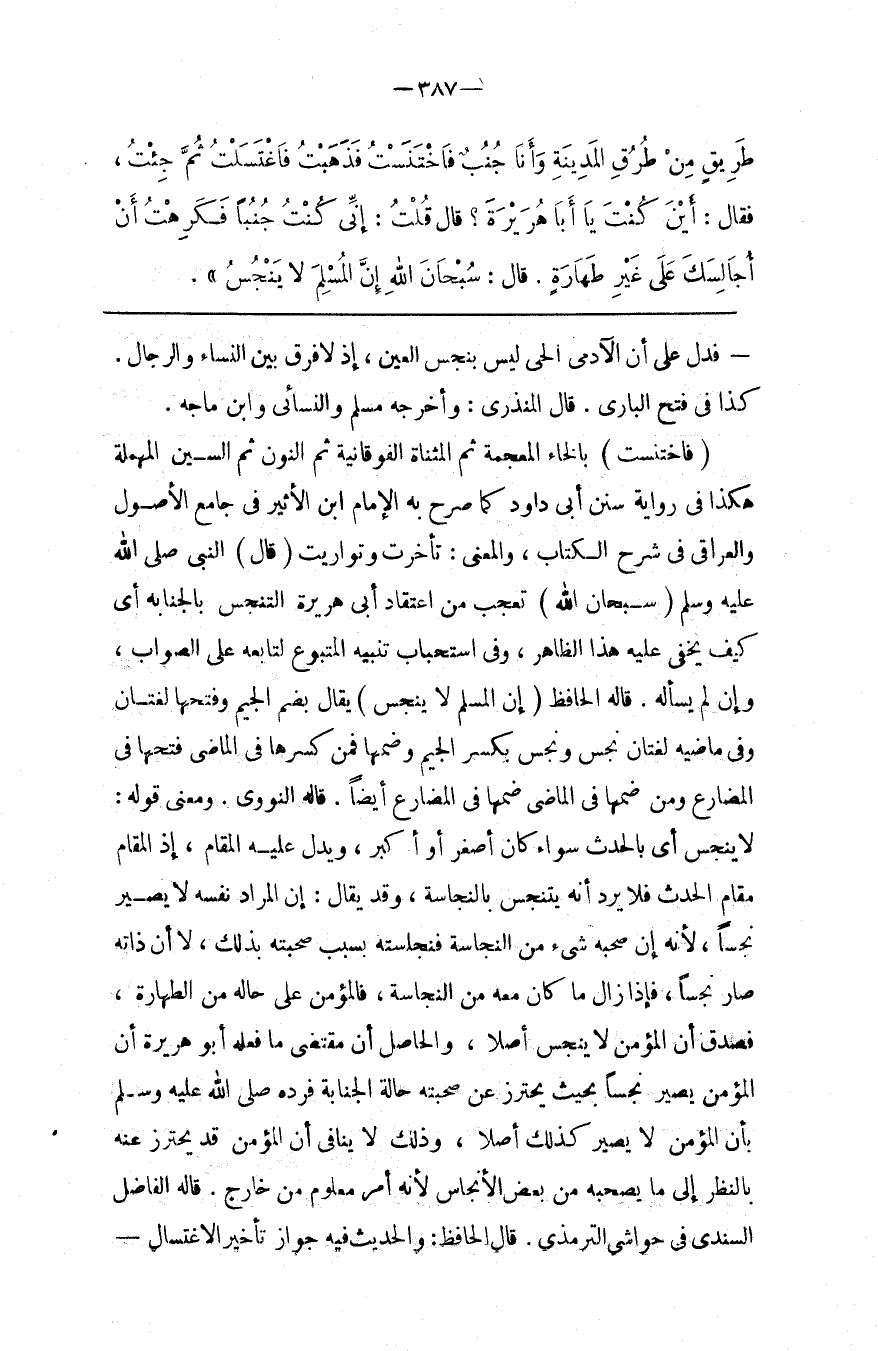 — ٣٨٧ —
طَرِيقٍ مِنْ طُرُقِ المَدِينَةِ وَأَنَا جُنُبٌ فَاخْتَنَسْتُ فَذَهَبْتُ فَاغْتَسَلْتُ ثُمَّ جِئْتُ ،
فقال : أَيْنَ كُنْتَ يَا أَبَا هُرَيْرَةَ ؟ قال قُلْتُ : إِنِّى كُنْتُ جُنُبًا فَكَرِهْتُ أَنْ
أُجَالِسَكَ عَلَى غَيْرِ طَهَارَةٍ . قال : سُبْحَانَ اللهِ إِنَّ المُسْلِمَ لا يَنْجُسُ » .
— فدل على أن الآدمى الحى ليس بنجس العين ، إذ لافرق بين النساء والرجال .
كذا فى فتح البارى . قال المنذرى : وأخرجه مسلم والنسائى وابن ماجه .
( فاختنست ) بالخاء المعجمة ثم المثناة الفوقانية ثم النون ثم السين المهملة
هكذا فى رواية سنن أبى داود كما صرح به الإمام ابن الأثير فى جامع الأصول
والعراقى فى شرح الكتاب ، والمعنى : تأخرت وتواريت ( قال ) النبى صلى الله
عليه وسلم ( سبحان الله ) تعجب من اعتقاد أبى هريرة التنجس بالجنابه أى
كيف يخفى عليه هذا الظاهر ، وفى استحباب تنبيه المتبوع لتابعه على الصواب ،
وإن لم يسأله . قاله الحافظ ( إن المسلم لا ينجس ) يقال بضم الجيم وفتحها لغتان
وفى ماضيه لغتان نجس ونجس بكسر الجيم وضمها فمن كسرها فى الماضى فتحها فى
المضارع ومن ضمها فى الماضى ضمها فى المضارع أيضاً . قاله النووى . ومعنى قوله :
لاينجس أى بالحدث سواء كان أصغر أو أكبر ، ويدل عليه المقام ، إذ المقام
مقام الحدث فلا يرد أنه يتنجس بالنجاسة ، وقد يقال : إن المراد نفسه لا يصير
نجساً ، لأنه إن صحبه شىء من النجاسة فنجاسته بسبب صحبته بذلك ، لا أن ذاته
صار نجساً ، فإذا زال ما كان معه من النجاسة ، فالمؤمن على حاله من الطهارة ،
فصدق أن المؤمن لا ينجس أصلا ، والحاصل أن مقتضى ما فعله أبو هريرة أن
المؤمن يصير نجساً بحيث يحترز عن صحبته حالة الجنابة فرده صلى الله عليه وسلم
بأن المؤمن لا يصير كذلك أصلا ، وذلك لا ينافى أن المؤمن قد يحترز عنه
بالنظر إلى ما يصحبه من بعض الأنجاس لأنه أمر معلوم من خارج . قاله الفاضل
السندى فى حواشى الترمذي . قال الحافظ : والحديث فيه جواز تأخير الاغتسال —